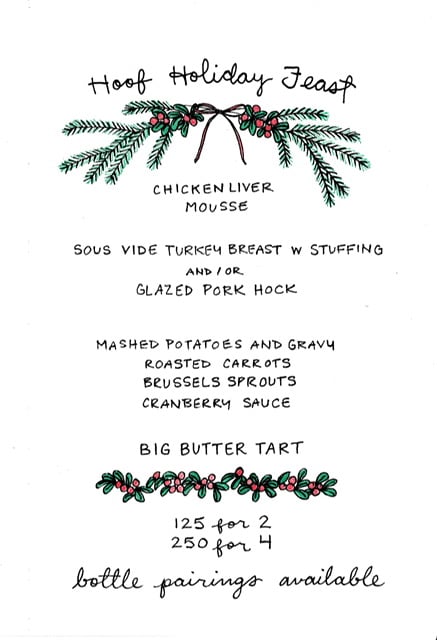 Hoof Holiday Feast
CHICKEN LIVER
MOUSSE
SOUS VIDE TURKEY BREAST W STUFFING
AND/OR
GLAZED PORK HOCK
MASHED POTATOES AND GRAVY
ROASTED CARROTS
BRUSSELS SPROUTS
CRANBERRY SAUCE
BIG BUTTER TART
125 for 2
250 for 4
bottle pairings available